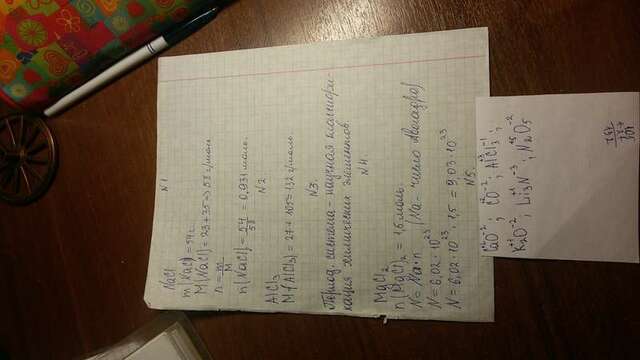 NaCl
N1
m(NaCl) = 54 г
M(NaCl) = 23 + 35 => 58 г/моль
n = m/M
n(NaCl) = 54/58 = 0,931 моль.
N2
AlCl3
M(AlCl3) = 27 + 105 = 132 г/моль.
N3.
Период. система - научная классифи-
кация химических элементов.
N4.
MgCl2
n(MgCl)2 = 1,5 моль.
N = Na · n (Na - число Авогадро)
N = 6,02 · 10^23
N = 6,02 · 10^23 · 1,5 = 9,03 · 10^23
N5.
Ca+2O-2; C+2O-2; Al+3Cl3-1;
K2+1O-2; Li3+1N-3; N2+5O5-2